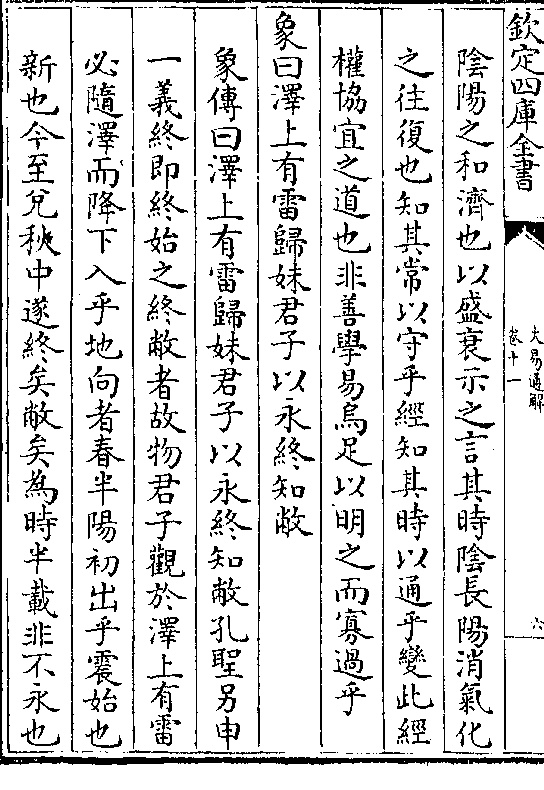 欽定四庫全書
大易通解
卷十一
六
陰陽之和濟也以盛衰示之言其時陰長陽消氣化
之往復也知其常以守乎經知其時以通乎變此經
權協宜之道也非善學易烏足以明之而寡過乎
象曰澤上有雷歸妹君子以永終知敝
象傳曰澤上有雷歸妹君子以永終知敝孔聖另申
一義終即終始之終敝者故物君子觀於澤上有雷
必隨澤而降下入乎地向者春半陽初出乎震始也
新也今至兌秋中遂終矣敝矣為時半載非不永也